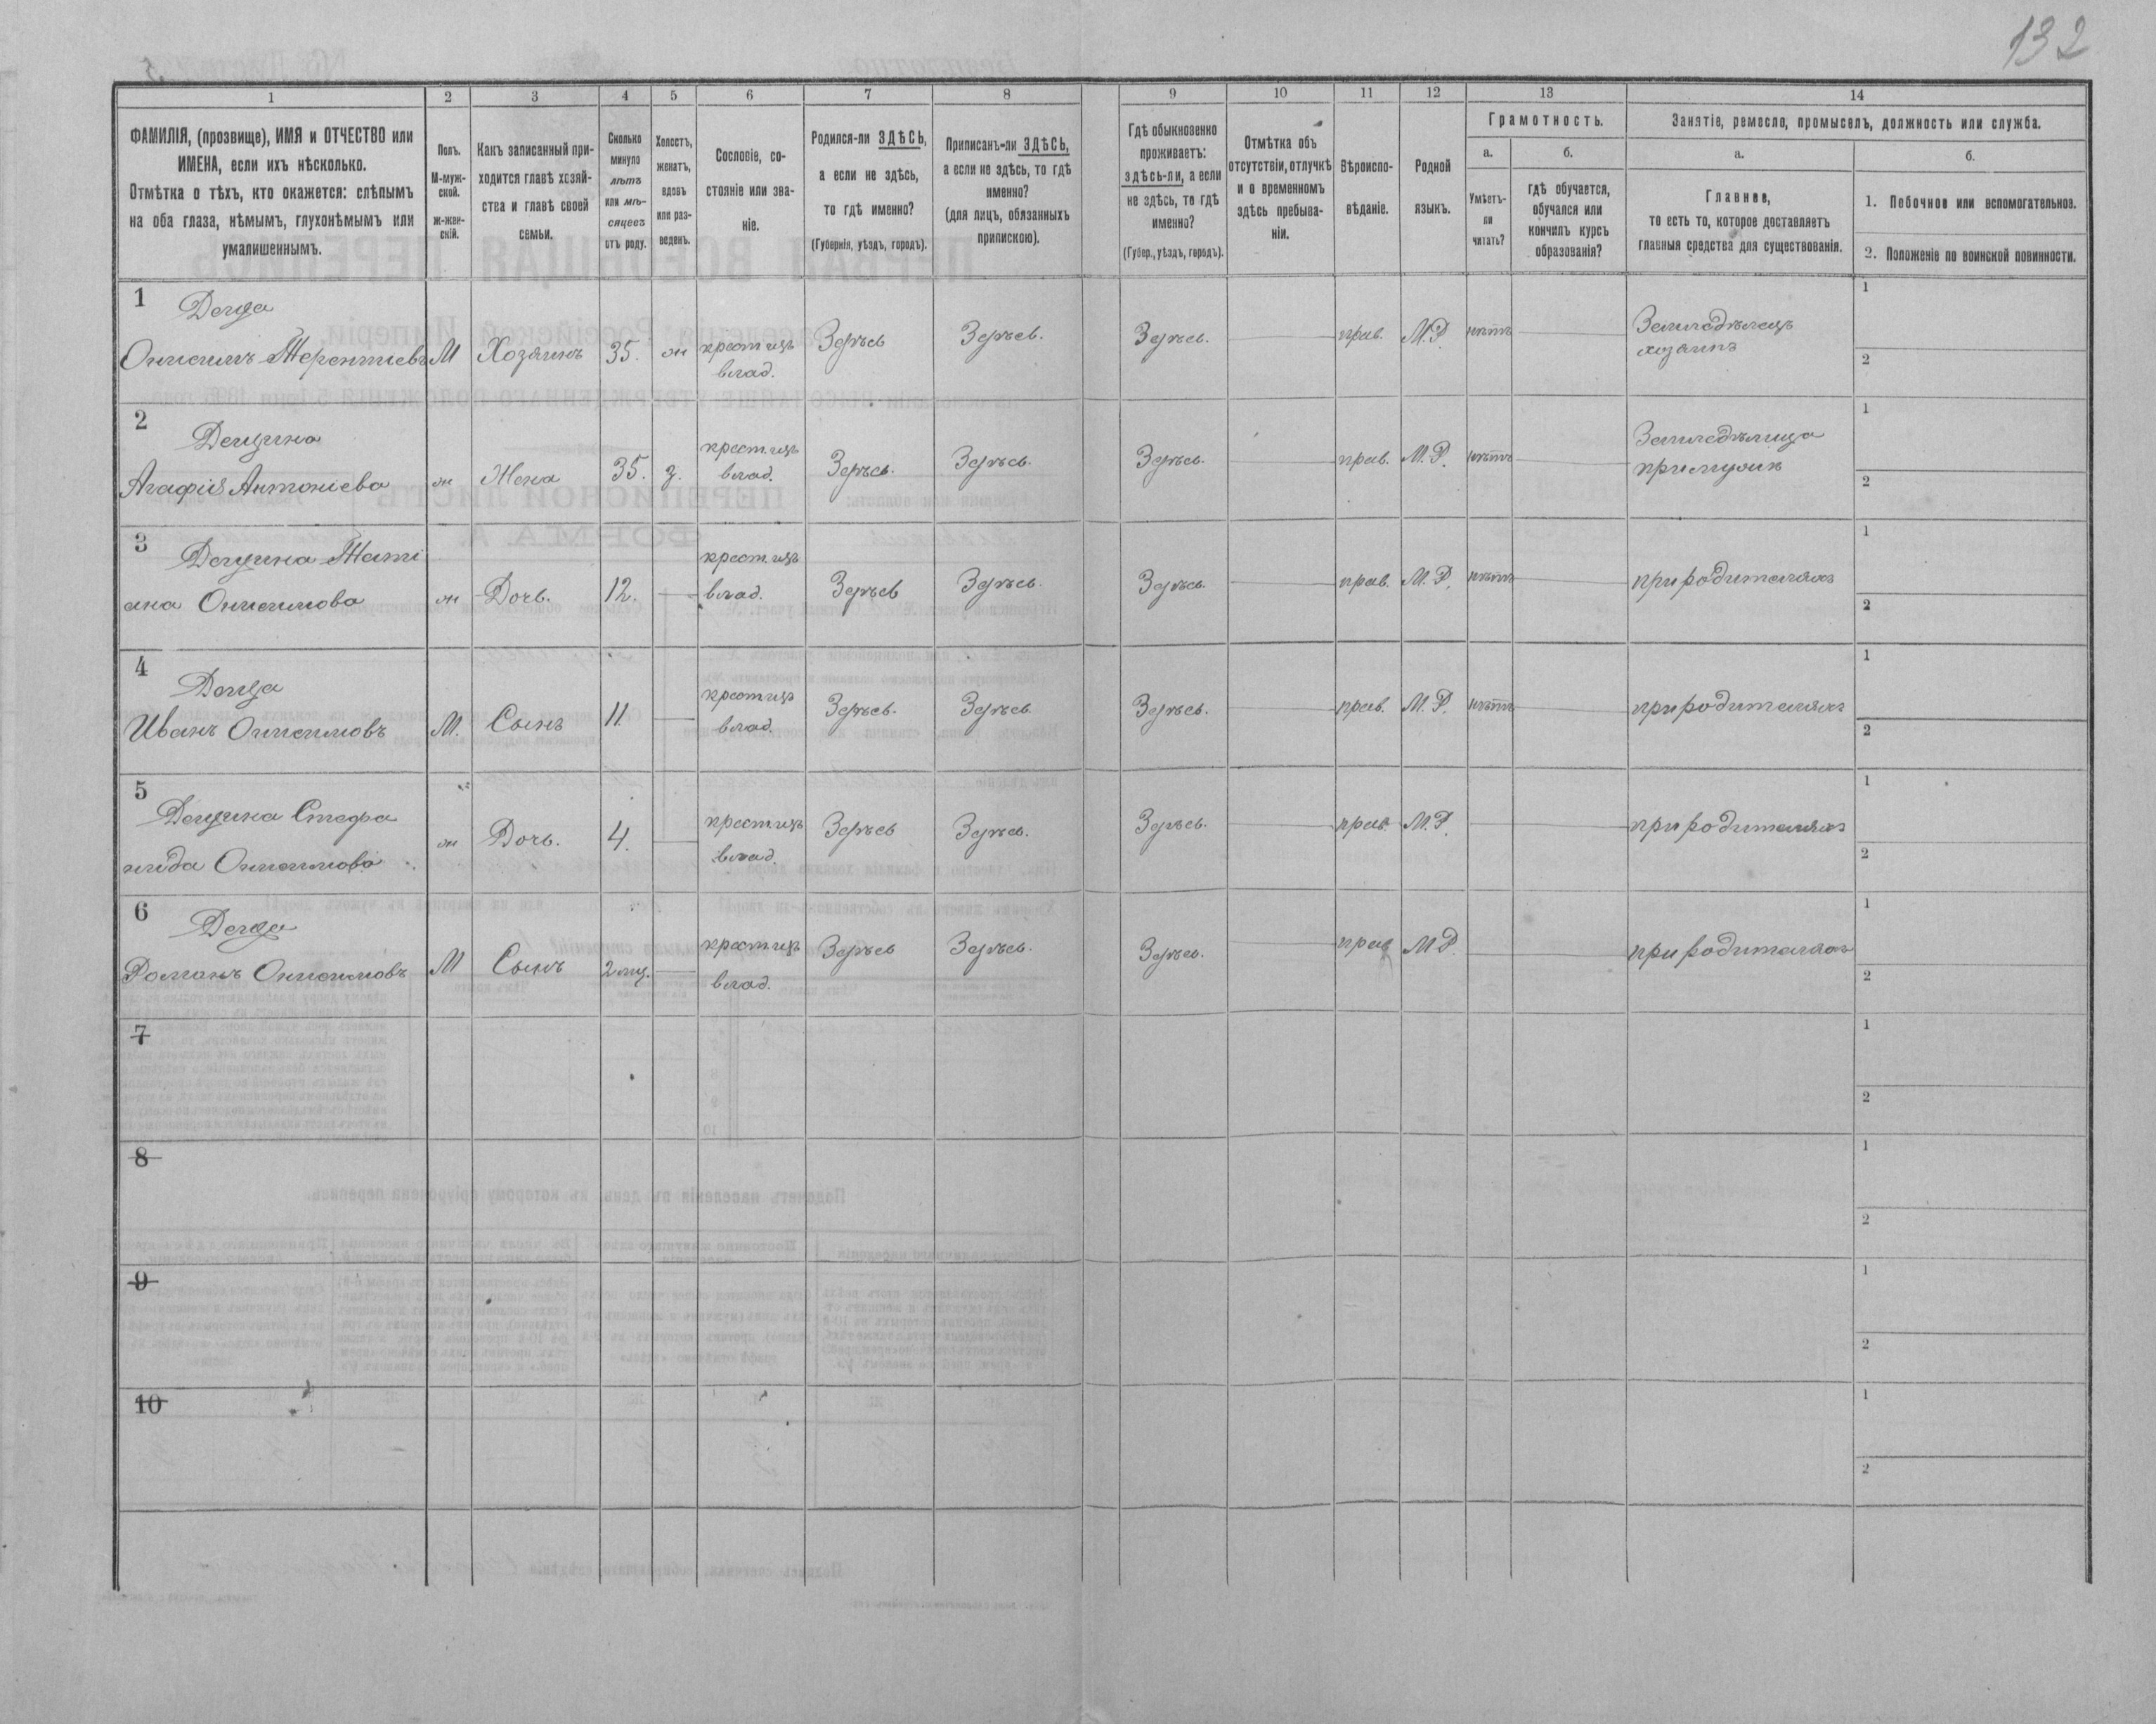 132
1
2
3
4
5
6
7
8
9
10
11
12
13
14
ФАМИЛІЯ, (прозвище), ИМЯ и ОТЧЕСТВО или
ИМЕНА, если ихъ нѣсколько.
Отмѣтка о тѣхъ, кто окажется: слѣпымъ
на оба глаза, нѣмымъ, глухонѣмымъ или
умалишеннымъ.
Полъ.
М-муж-
ской.
ж-жен-
скій.
Какъ записанный при-
ходится главѣ хозяй-
ства и главѣ своей
семьи.
Сколько
минуло
лѣтъ
или мѣ-
сяцевъ
отъ роду.
Холостъ,
женатъ,
вдовъ
или раз-
веденъ.
Сословіе, со-
стояніе или зва-
ніе.
Родился-ли ЗДѢСЬ,
а если не здѣсь,
то гдѣ именно?
(Губернія, уѣздъ, городъ).
Приписанъ-ли ЗДѢСЬ,
а если не здѣсь, то гдѣ
именно?
(для лицъ, обязанныхъ
припискою).
Гдѣ обыкновенно
проживаетъ:
здѣсь-ли, а если
не здѣсь, то гдѣ
именно?
(Губер., уѣздъ, городъ).
Отмѣтка объ
отсутствіи, отлучкѣ
и о временномъ
здѣсь пребыва-
ніи.
Вѣроиспо-
вѣданіе.
Родной
языкъ.
Грамотность.
а.
Умѣетъ-
ли
читать?
б.
гдѣ обучается,
обучался или
кончилъ курсъ
образованія?
Занятіе, ремесло, промыселъ, должность или служба.
а.
Главное,
то есть то, которое доставляетъ
главныя средства для существованія.
б.
1. Побочное или вспомогательное.
2. Положеніе по воинской повинности.
1
Онисимъ Терентіевъ М Хозяинъ 35. крест. влад. Здѣсь Здѣсь. Здѣсь. прав. М.Р. нѣтъ Земледѣлецъ хозяинъ
1
2
2
Агафія Антоніева Жена 35. з. крест. влад. Здѣсь. Здѣсь. Здѣсь. прав. М.Р. нѣтъ Земледѣлица при мужѣ
1
2
3
Тати
ана Онисимова Дочь. 12. крест. влад. Здѣсь Здѣсь. Здѣсь. прав. М.Р. нѣтъ при родителяхъ
1
2
4
Иванъ Онисимовъ М. Сынъ 11 крест. влад. Здѣсь. Здѣсь Здѣсь. прав. М.Р. нѣтъ при родителяхъ
1
2
5
Стефа
нида Онисимова Дочь. 4. крест. влад. Здѣсь Здѣсь. Здѣсь. прав. М.Р. при родителяхъ
1
2
6
Романъ Онисимовъ М Сынъ 2 мц. крест. влад. Здѣсь Здѣсь. Здѣсь. прав. М.Р. при родителяхъ
1
2
7
1
2
8
1
2
9
1
2
10
1
2